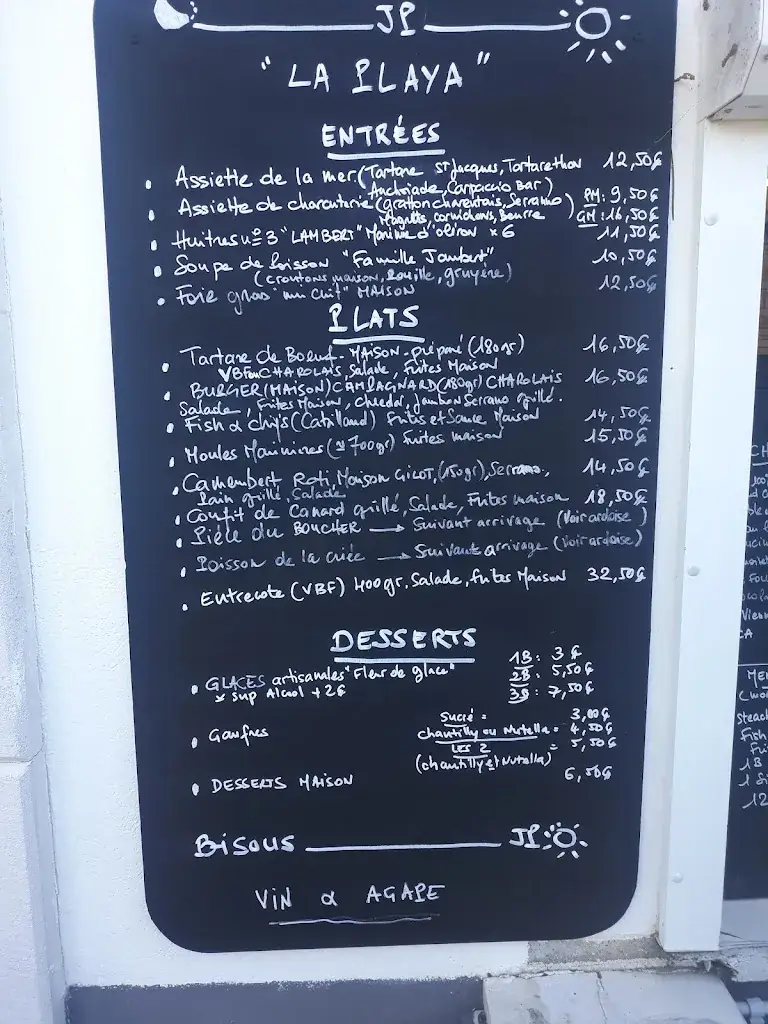 JP
"LA PLAYA"
ENTRÉES
• Assiette de la mer (Tartare St Jacques, Tartare thon 12,50€
Anchoiade, Carpaccio Bar)
• Assiette de charcuterie (grattons charentais, Serrano PM: 9,50€
Magrets, cornichons, Beurre) GM: 16,50€
• Huitres n°3 "LAMBERT" Marennes d'oléron x6 11,50€
• Soupe de Poisson "Famille Jambert" 10,50€
(croutons maison, rouille, gruyère)
• Foie gras "mi cuit" MAISON 12,50€
PLATS
• Tartare de Boeuf - MAISON - préparé (180gr) 16,50€
VBF CHAROLAIS, Salade, Frites Maison
• BURGER (MAISON) CAMPAGNARD (180gr) CHAROLAIS 16,50€
Salade, Frites Maison, Cheddar, Jambon Serrano grillé.
• Fish & chips (Cabillaud) Frites et Sauce Maison 14,50€
• Moules Marinières (≈ 700gr) Frites maison 15,50€
• Camembert Roti, Maison GILLOT, (150gr), Serrano, 14,50€
Pain grillé, Salade
• Confit de Canard grillé, Salade, Frites maison 18,50€
• Pièce du BOUCHER → Suivant arrivage (Voir ardoise)
• Poisson de la criée → Suivant arrivage (Voir ardoise)
• Entrecote (VBF) 400gr, Salade, Frites Maison 32,50€
DESSERTS
• GLACES artisanales "Fleur de glace" 1B: 3€
* Sup Alcool +2€ 2B: 5,50€
3B: 7,50€
• Gaufres Sucre = 3,00€
chantilly ou Nutella = 4,50€
Les 2 = 5,50€
(chantilly et Nutella)
• DESSERTS MAISON 6,50€
Bisous JP
VIN & AGAPE